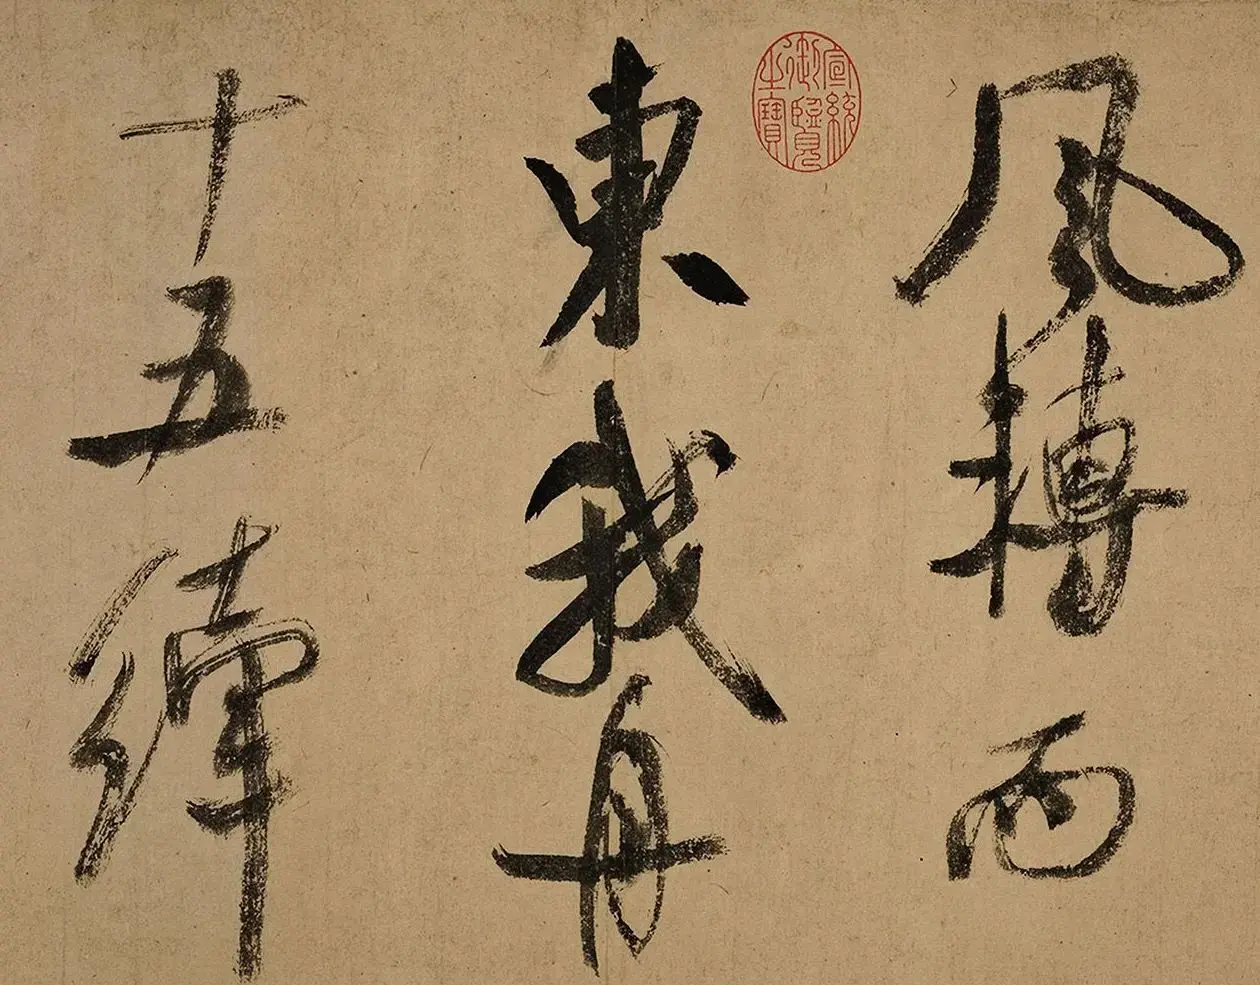 風轉而
東我舟
十五縴
宣統
御覽
之寶